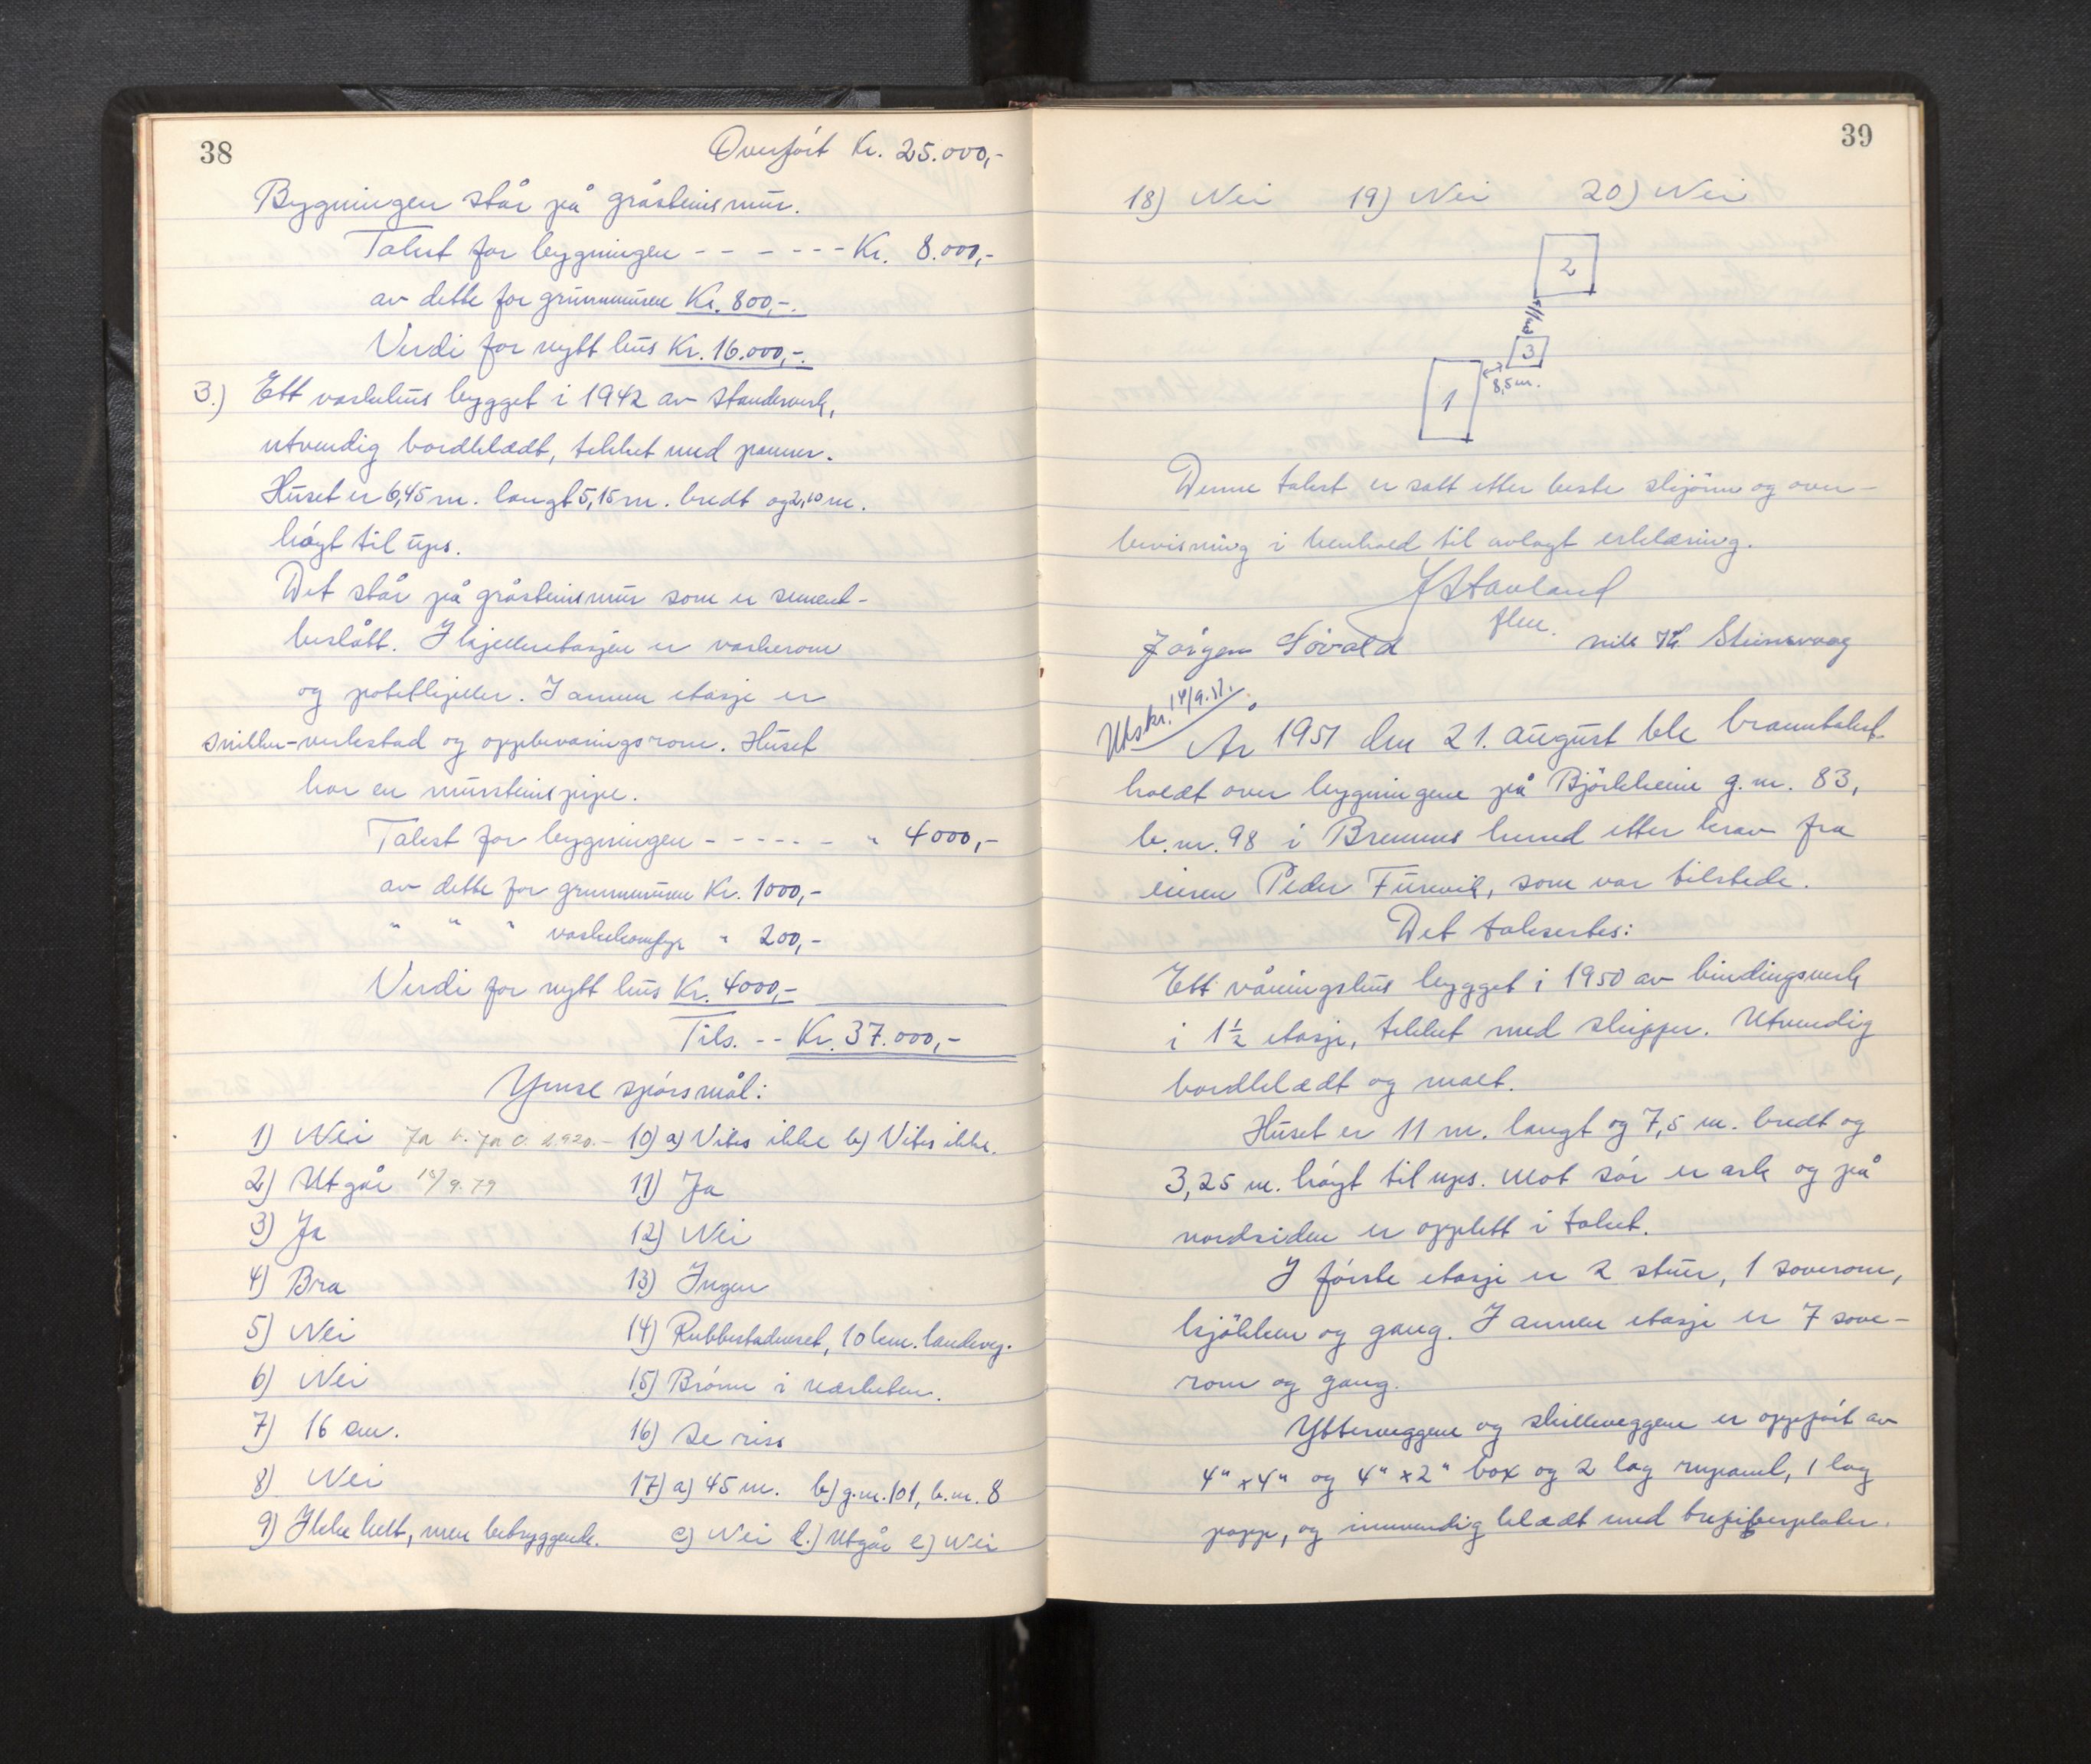 38
Overfört Kr. 25.000,-
Bygningen står på gråsteinsmur.
Takst for bygningen - - - - - - Kr. 8.000,-
av dette for grunnmuren Kr. 800,-.
Verdi for nytt hus Kr. 16.000,-.
3.) Ett vaskehus bygget i 1942 av standerverk,
utvendig bordklædt, tekket med panner.
Huset er 6,45 m. langt 5,15 m. bredt og 2,10 m.
höyt til ups.
Det står på gråsteinsmur som er sement-
beslått. I kjelleretasjen er vaskerom
og potetkjeller. I annen etasje er
snikker-verkstad og oppbevaringsrom. Huset
har en mursteinspipe.
Takst for bygningen - - - - - - " 4000,-
av dette for grunnmuren Kr. 1000,-
" " " vaskekomfyr " 200,-
Verdi for nytt hus Kr. 4000,-
Tils. -- Kr. 37.000,-
Ymse spörsmål:
1) Nei Ja b. Ja c. 1.920.- 10) a) Vites ikke b) Vites ikke.
2) Utgår 18/9.79 11) Ja
3) Ja 12) Nei
4) Bra 13) Ingen
5) Nei 14) Rubbestadneset, 10 km. landveg.
6) Nei 15) Brönn i nærheten.
7) 16 cm. 16) Se riss
8) Nei 17) a) 45 m. b) g.nr. 101, b.nr. 8
9) Ikke helt, men betryggende. c) Nei d.) Utgår e) Nei
39
18) Nei 19) Nei 20) Nei
2
3
8,5 m.
1
Denne takst er satt etter beste skjönn og over-
bevisning i henhold til avlagt erklæring.
J Stavland
Jörgen Lövold Nils Kr. Steinsvaag
Utskr. 14/9.51.
År 1951 den 21. august ble branntakst
holdt over bygningene på Björkheim g.nr. 83,
b.nr. 98 i Bremnes herred etter krav fra
eieren Peder Furevik, som var tilstede.
Det takseres:
Ett våningshus bygget i 1950 av bindingsverk
i 1½ etasje, tekket med skifer. Utvendig
bordklædt og malt.
Huset er 11 m. langt og 7,5 m. bredt og
3,25 m. höyt til ups. Mot sör er ark og på
nordsiden er opplett i taket.
I förste etasje er 2 stuer, 1 soverom,
kjökken og gang. I annen etasje er 7 sove-
rom og gang.
Ytterveggene og skilleveggene er oppfört av
4" x 4" og 4" x 2" box og 2 lag rupanel, 1 lag
papp, og innvendig klædt med trefiberplater.